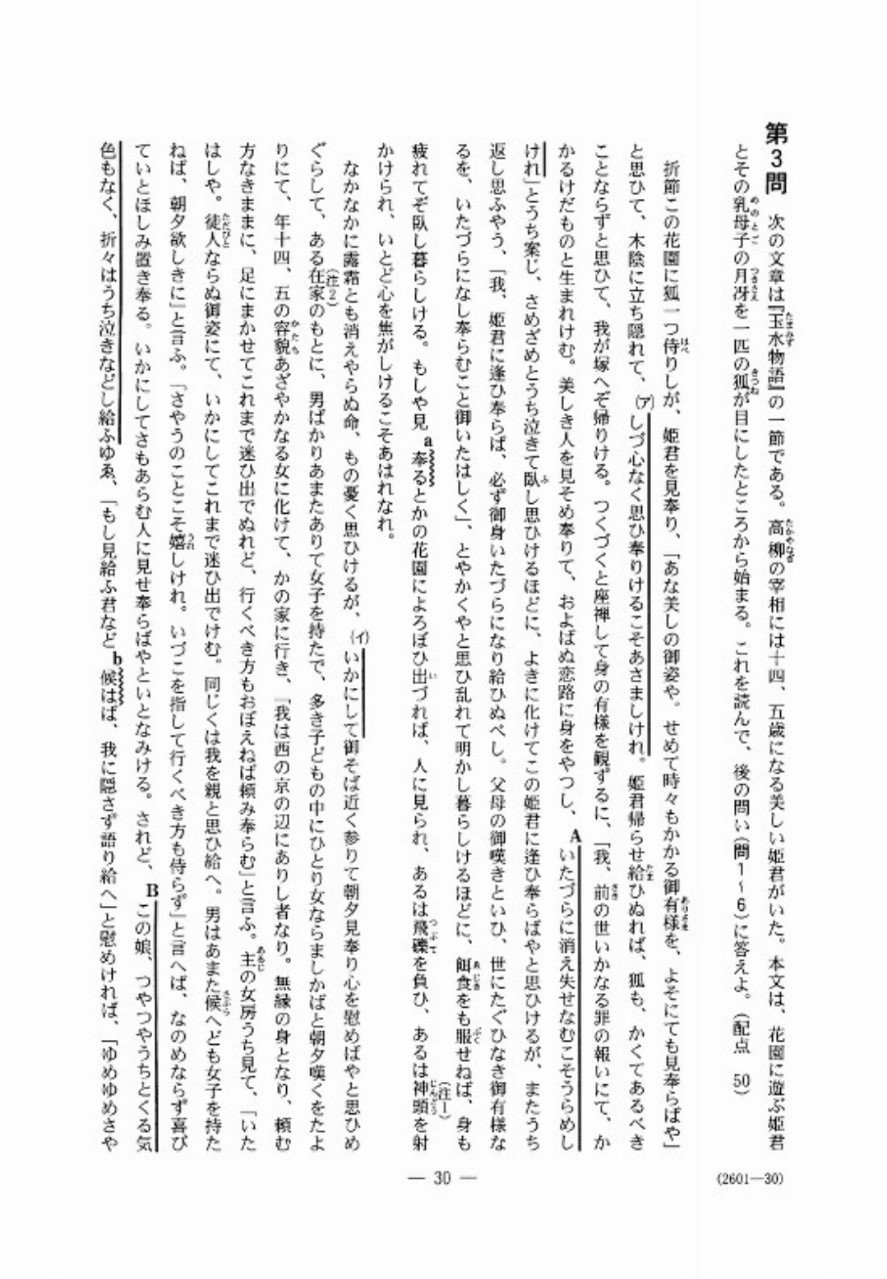 第3問　次の文章は『玉水物語』の一節である。高柳の宰相には十四、五歳になる美しい姫君がいた。本文は、花園に遊ぶ姫君
とその乳母子の月冴を一匹の狐が目にしたところから始まる。これを読んで、後の問い(問1～6)に答えよ。(配点　50)
折節この花園に狐一つ侍りしが、姫君を見奉り、「あな美しの御姿や。せめて時々もかかる御有様を、よそにても見奉らばや」
と思ひて、木陰に立ち隠れて、(ア)しづ心なく思ひ奉りけるこそあさましけれ。姫君帰らせ給ひぬれば、狐も、かくてあるべき
ことならずと思ひて、我が塚へぞ帰りける。つくづくと座禅して身の有様を観ずるに、「我、前の世いかなる罪の報いにて、か
かるけだものと生まれけむ。美しき人を見そめ奉りて、およばぬ恋路に身をやつし、Aいたづらに消え失せなむこそうらめし
けれ」とうち案じ、さめざめとうち泣きて臥し思ひけるほどに、よきに化けてこの姫君に逢ひ奉らばやと思ひけるが、またうち
返し思ふやう、「我、姫君に逢ひ奉らば、必ず御身いたづらになり給ひぬべし。父母の御嘆きといひ、世にたぐひなき御有様な
るを、いたづらになし奉らむこと御いたはしく」、とやかくやと思ひ乱れて明かし暮らしけるほどに、餌食をも服せねば、身も
疲れてぞ臥し暮らしける。もしや見a奉るとかの花園によろぼひ出づれば、人に見られ、あるは飛礫を負ひ、あるは神頭を射(注1)
かけられ、いとど心を焦がしけるこそあはれなれ。
なかなかに露霜とも消えやらぬ命、もの憂く思ひけるが、(イ)いかにして御そば近く参りて朝夕見奉り心を慰めばやと思ひめ
ぐらして、ある在家(注2)のもとに、男ばかりあまたありて女子を持たで、多き子どもの中にひとり女ならましかばと朝夕嘆くをたよ
りにて、年十四、五の容貌あざやかなる女に化けて、かの家に行き、「我は西の京の辺にありし者なり。無縁の身となり、頼む
方なきままに、足にまかせてこれまで迷ひ出でぬれど、行くべき方もおぼえねば頼み奉らむ」と言ふ。主の女房うち見て、「いた
はしや。徒人ならぬ御姿にて、いかにしてこれまで迷ひ出でけむ。同じくは我を親と思ひ給へ。男はあまた候へども女子を持た
ねば、朝夕欲しきに」と言ふ。「さやうのことこそ嬉しけれ。いづこを指して行くべき方も侍らず」と言へば、なのめならず喜び
ていとほしみ置き奉る。いかにしてさもあらむ人に見せ奉らばやといとなみける。されど、Bこの娘、つやつやうちとくる気
色もなく、折々はうち泣きなどし給ふゆゑ、「もし見給ふ君などb候はば、我に隠さず語り給へ」と慰めければ、「ゆめゆめさや
— 30 —
(2601—30)